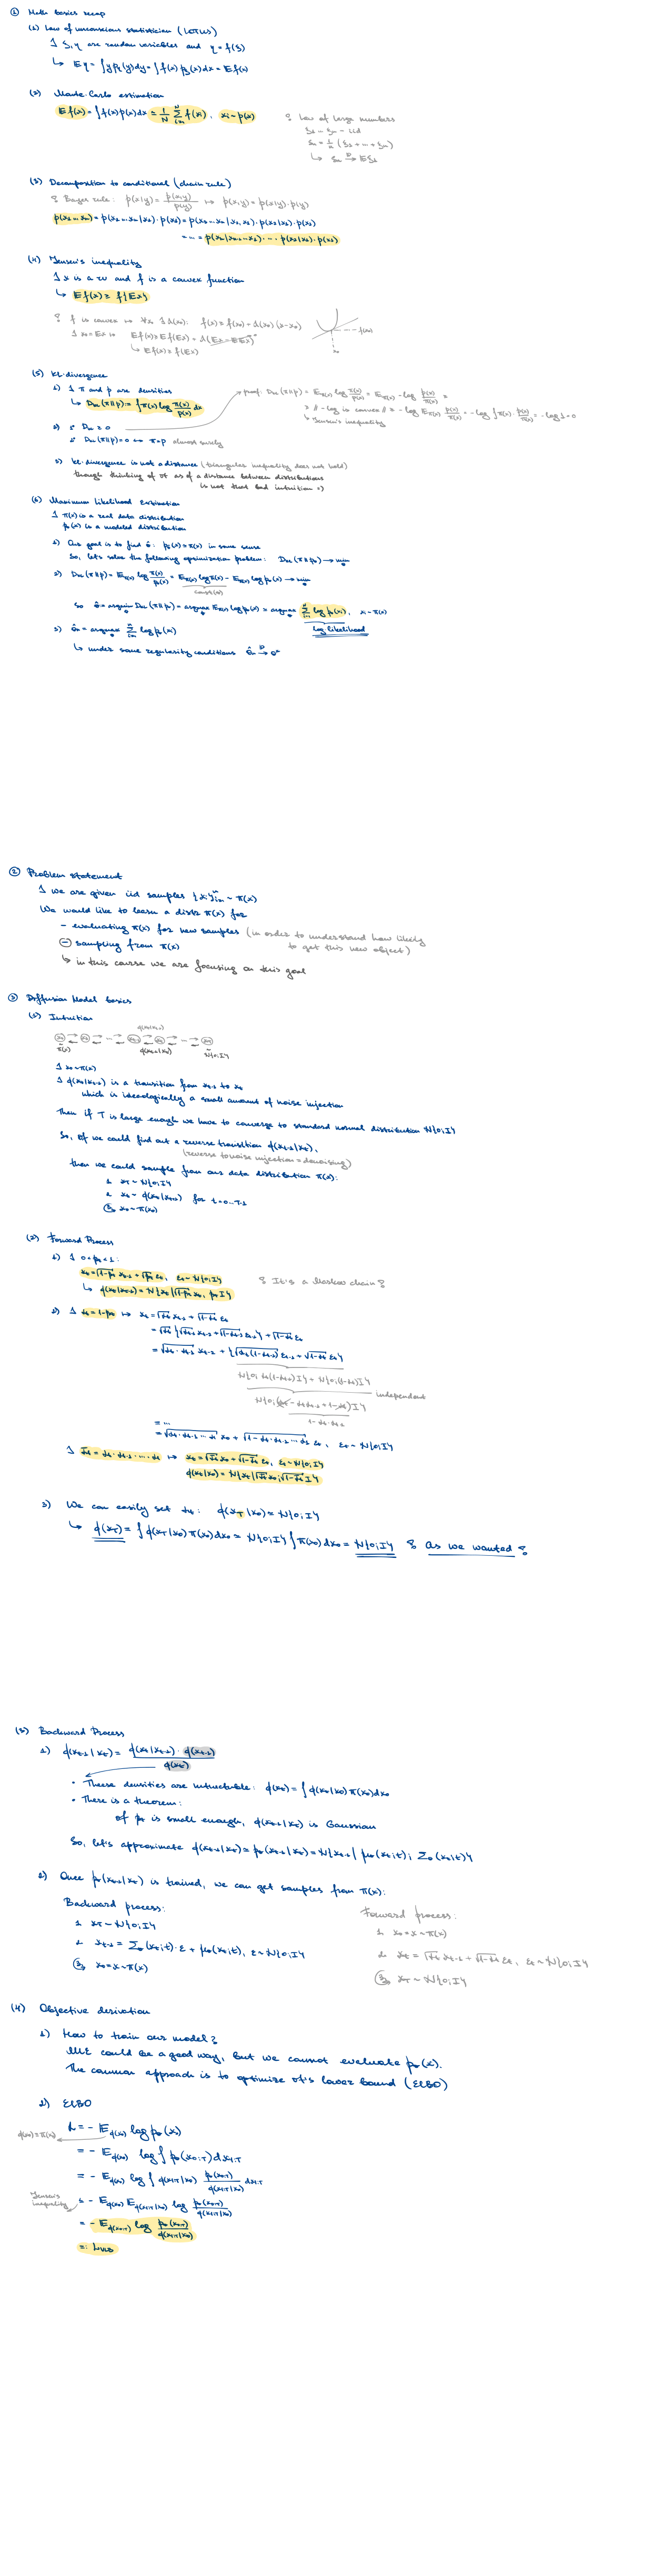 ① Math basics recap
(1) Law of unconscious statistician (LOTUS)
] ξ, η are random variables and η = f(ξ)
↳ Eη = ∫ y p_η(y) dy = ∫ f(x) p_ξ(x) dx = E f(x)
(2) Monte-Carlo estimation
E f(x) = ∫ f(x) p(x) dx ≈ 1/N Σ_{i=1}^N f(x_i), x_i ~ p(x)
Law of large numbers
ξ_1 ... ξ_n - iid
ξ_n = 1/n (ξ_1 + ... + ξ_n)
↳ ξ_n →^P Eξ_1
(3) Decomposition to conditional (chain rule)
Bayes rule: p(x|y) = p(x,y)/p(y) ↦ p(x,y) = p(x|y)·p(y)
p(x_1 ... x_n) = p(x_2 ... x_n|x_1)·p(x_1) = p(x_3 ... x_n|x_1, x_2)·p(x_2|x_1)·p(x_1)
= ... = p(x_n|x_{n-1} ... x_1)· ... ·p(x_2|x_1)·p(x_1)
(4) Jensen's inequality
] x is a rv and f is a convex function
↳ E f(x) ≥ f(Ex)
f is convex ↦ ∀x_0 ∃ λ(x_0): f(x) ≥ f(x_0) + λ(x_0)(x-x_0)
] x_0 = Ex ↦ E f(x) ≥ E f(Ex) + λ(Ex - EEx)
↳ E f(x) ≥ f(Ex)
f(x_0)
x_0
(5) KL-divergence
1) ] π and p are densities
↳ D_KL(π||p) := ∫ π(x) log π(x)/p(x) dx
proof: D_KL(π||p) = E_π(x) log π(x)/p(x) = E_π(x) -log p(x)/π(x) =
-log is convex ≥ -log E_π(x) p(x)/π(x) = -log ∫ π(x)· p(x)/π(x) = -log 1 = 0
↳ Jensen's inequality
2) D_KL ≥ 0
D_KL(π||p) = 0 ↔ π = p almost surely
3) KL-divergence is not a distance (triangular inequality does not hold)
though thinking of it as of a distance between distributions
is not that bad intuition =)
(6) Maximum Likelihood Estimation
] π(x) is a real data distribution
p_θ(x) is a modeled distribution
1) Our goal is to find θ: p_θ(x) ≈ π(x) in some sense
So, let's solve the following optimization problem: D_KL(π||p_θ) → min_θ
2) D_KL(π||p) = E_π(x) log π(x)/p_θ(x) = E_π(x) log π(x) - E_π(x) log p_θ(x) → min_θ
const(θ)
So θ* = argmin_θ D_KL(π||p_θ) = argmax_θ E_π(x) log p_θ(x) ≈ argmax_θ Σ_{i=1}^n log p_θ(x_i), x_i ~ π(x)
log-likelihood
3) θ̂_n = argmax_θ Σ_{i=1}^n log p_θ(x_i)
↳ under some regularity conditions θ̂_n →^P θ*
② Problem statement
] we are given iid samples {x_i}_{i=1}^n ~ π(x)
We would like to learn a distr π(x) for
- evaluating π(x) for new samples (in order to understand how likely
to get this new object)
⊖ sampling from π(x)
↳ in this course we are focusing on this goal
③ Diffusion Model basics
(1) Intuition
q(x_t|x_{t-1})
x_0 ⇄ x_1 ⇄ ... ⇄ x_{t-1} ⇄ x_t ⇄ ... ⇄ x_T
π(x) q(x_{t-1}|x_t) N{0; I}
] x_0 ~ π(x)
] q(x_t|x_{t-1}) is a transition from x_{t-1} to x_t
which is ideologically a small amount of noise injection
Then if T is large enough we have to converge to standard normal distribution N{0; I}
So, if we could find out a reverse transition q(x_{t-1}|x_t),
(reverse to noise injection = denoising)
then we could sample from our data distribution π(x):
1. x_T ~ N{0; I}
2. x_t ~ q(x_t|x_{t+1}) for t = 0...T-1
③ x_0 ~ π(x)
(2) Forward Process
1) ] 0 < β_t < 1:
x_t = √(1-β_t) x_{t-1} + √β_t ε_t, ε_t ~ N{0; I}
↳ q(x_t|x_{t-1}) = N{x_t | √(1-β_t) x_{t-1}, β_t I}
It's a Markov chain
2) ] α_t = 1-β_t ↦ x_t = √α_t x_{t-1} + √(1-α_t) ε_t
= √α_t {√α_{t-1} x_{t-2} + √(1-α_{t-1}) ε_{t-1}} + √(1-α_t) ε_t
= √(α_t·α_{t-1}) x_{t-2} + {√(α_t(1-α_{t-1})) ε_{t-1} + √(1-α_t) ε_t}
N{0; α_t(1-α_{t-1})I} + N{0; (1-α_t)I}
independent
N{0; (α_t - α_tα_{t-1} + 1 - α_t)I}
1-α_t·α_{t-1}
= ...
= √(α_t·α_{t-1} ... α_1) x_0 + √(1-α_t·α_{t-1} ... α_1) ε_t, ε_t ~ N{0; I}
] ᾱ_t = α_t·α_{t-1}· ... ·α_1 ↦ x_t = √ᾱ_t x_0 + √(1-ᾱ_t) ε_t, ε_t ~ N{0; I}
q(x_t|x_0) = N{x_t | √ᾱ_t x_0; √(1-ᾱ_t) I}
3) We can easily set α_t: q(x_T|x_0) ≈ N{0; I}
↳ q(x_T) = ∫ q(x_T|x_0) π(x_0) dx_0 ≈ N{0; I} ∫ π(x_0) dx_0 = N{0; I} As we wanted
(3) Backward Process
1) q(x_{t-1}|x_t) = q(x_t|x_{t-1})·q(x_{t-1}) / q(x_t)
• These densities are intractable: q(x_t) = ∫ q(x_t|x_0) π(x_0) dx_0
• There is a theorem:
if β_t is small enough, q(x_{t-1}|x_t) is Gaussian
So, let's approximate q(x_{t-1}|x_t) ≈ p_θ(x_{t-1}|x_t) = N{x_{t-1} | μ_θ(x_t; t); Σ_θ(x_t; t)}
2) Once p_θ(x_{t-1}|x_t) is trained, we can get samples from π(x):
Backward process:
1. x_T ~ N{0; I}
2. x_{t-1} = Σ_θ(x_t; t)·ε + μ_θ(x_t; t), ε ~ N{0; I}
③ x_0 = x ~ π(x)
Forward process:
1. x_0 = x ~ π(x)
2. x_t = √α_t x_{t-1} + √(1-α_t) ε_t, ε_t ~ N{0; I}
③ x_T ~ N{0; I}
(4) Objective derivation
1) How to train our model?
MLE could be a good way, but we cannot evaluate p_θ(x).
The common approach is to optimize it's lower bound (ELBO)
2) ELBO
q(x_0) = π(x_0)
L = - E_q(x_0) log p_θ(x_0)
= - E_q(x_0) log ∫ p_θ(x_{0:T}) dx_{1:T}
= - E_q(x_0) log ∫ q(x_{1:T}|x_0) p_θ(x_{0:T})/q(x_{1:T}|x_0) dx_{1:T}
Jensen's inequality
≤ - E_q(x_0) E_q(x_{1:T}|x_0) log p_θ(x_{0:T})/q(x_{1:T}|x_0)
= - E_q(x_{0:T}) log p_θ(x_{0:T})/q(x_{1:T}|x_0)
=: L_VLB